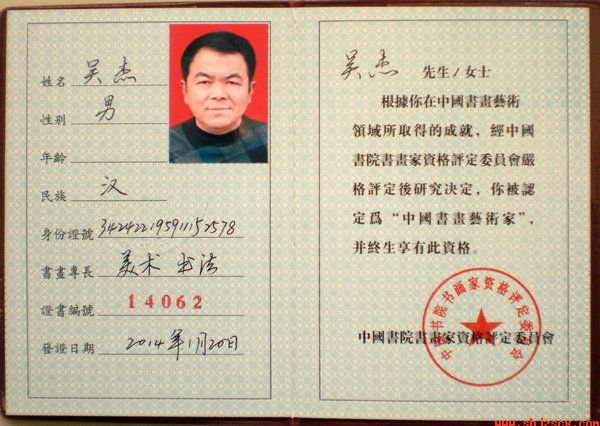 姓名 吴杰
性别 男
年齡
民族 汉
身份證號 342422195911152578
書畫專長 美术 书法
證書編號 14062
發證日期 2014年1月20日
吴杰 先生/女士
根據你在中國書畫藝術
領域所取得的成就，經中國
書院書畫家資格評定委員會嚴
格評定後研究决定，你被認
定爲“中國書畫藝術家”，
并終生享有此資格。
中國書院書畫家資格評定委員會
中国书院书画家资格评定委员会